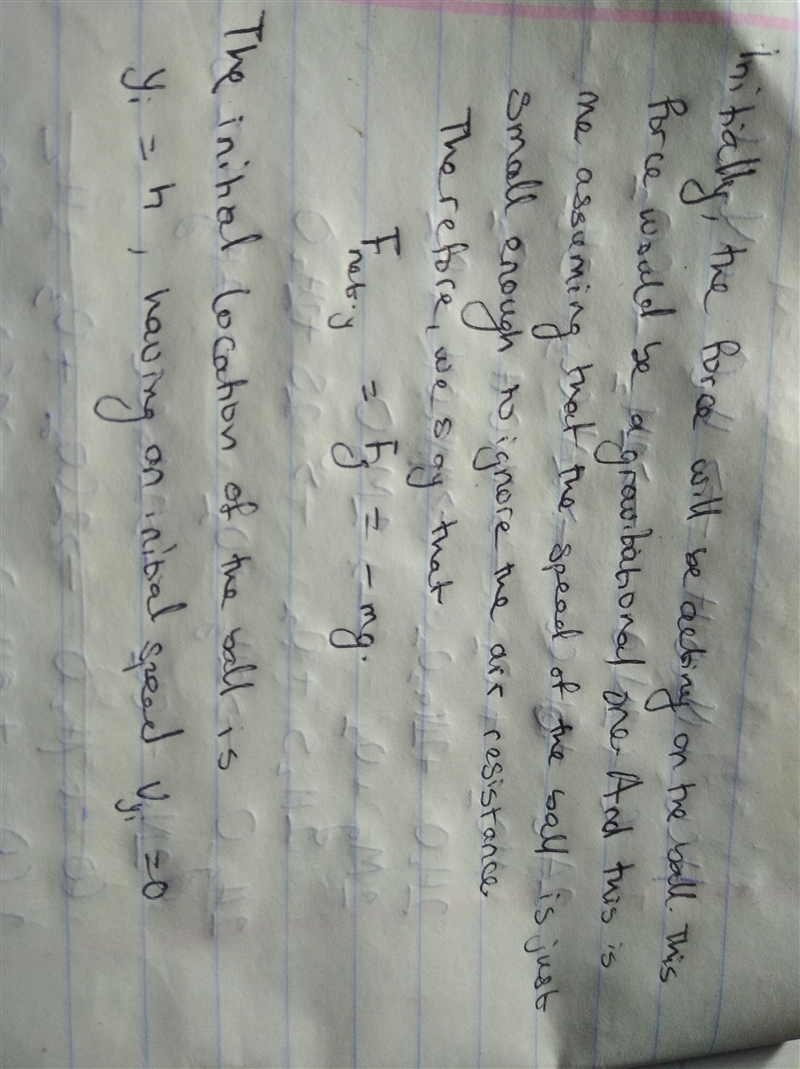 Initially, the force will be acting on the ball. This
force would be a gravitational one. And this is
me assuming that the speed of the ball is just
small enough to ignore the air resistance.
Therefore, we say that
F_net.y = F_g = -mg.
The initial location of the ball is
y_i = h, having an initial speed v_yi = 0